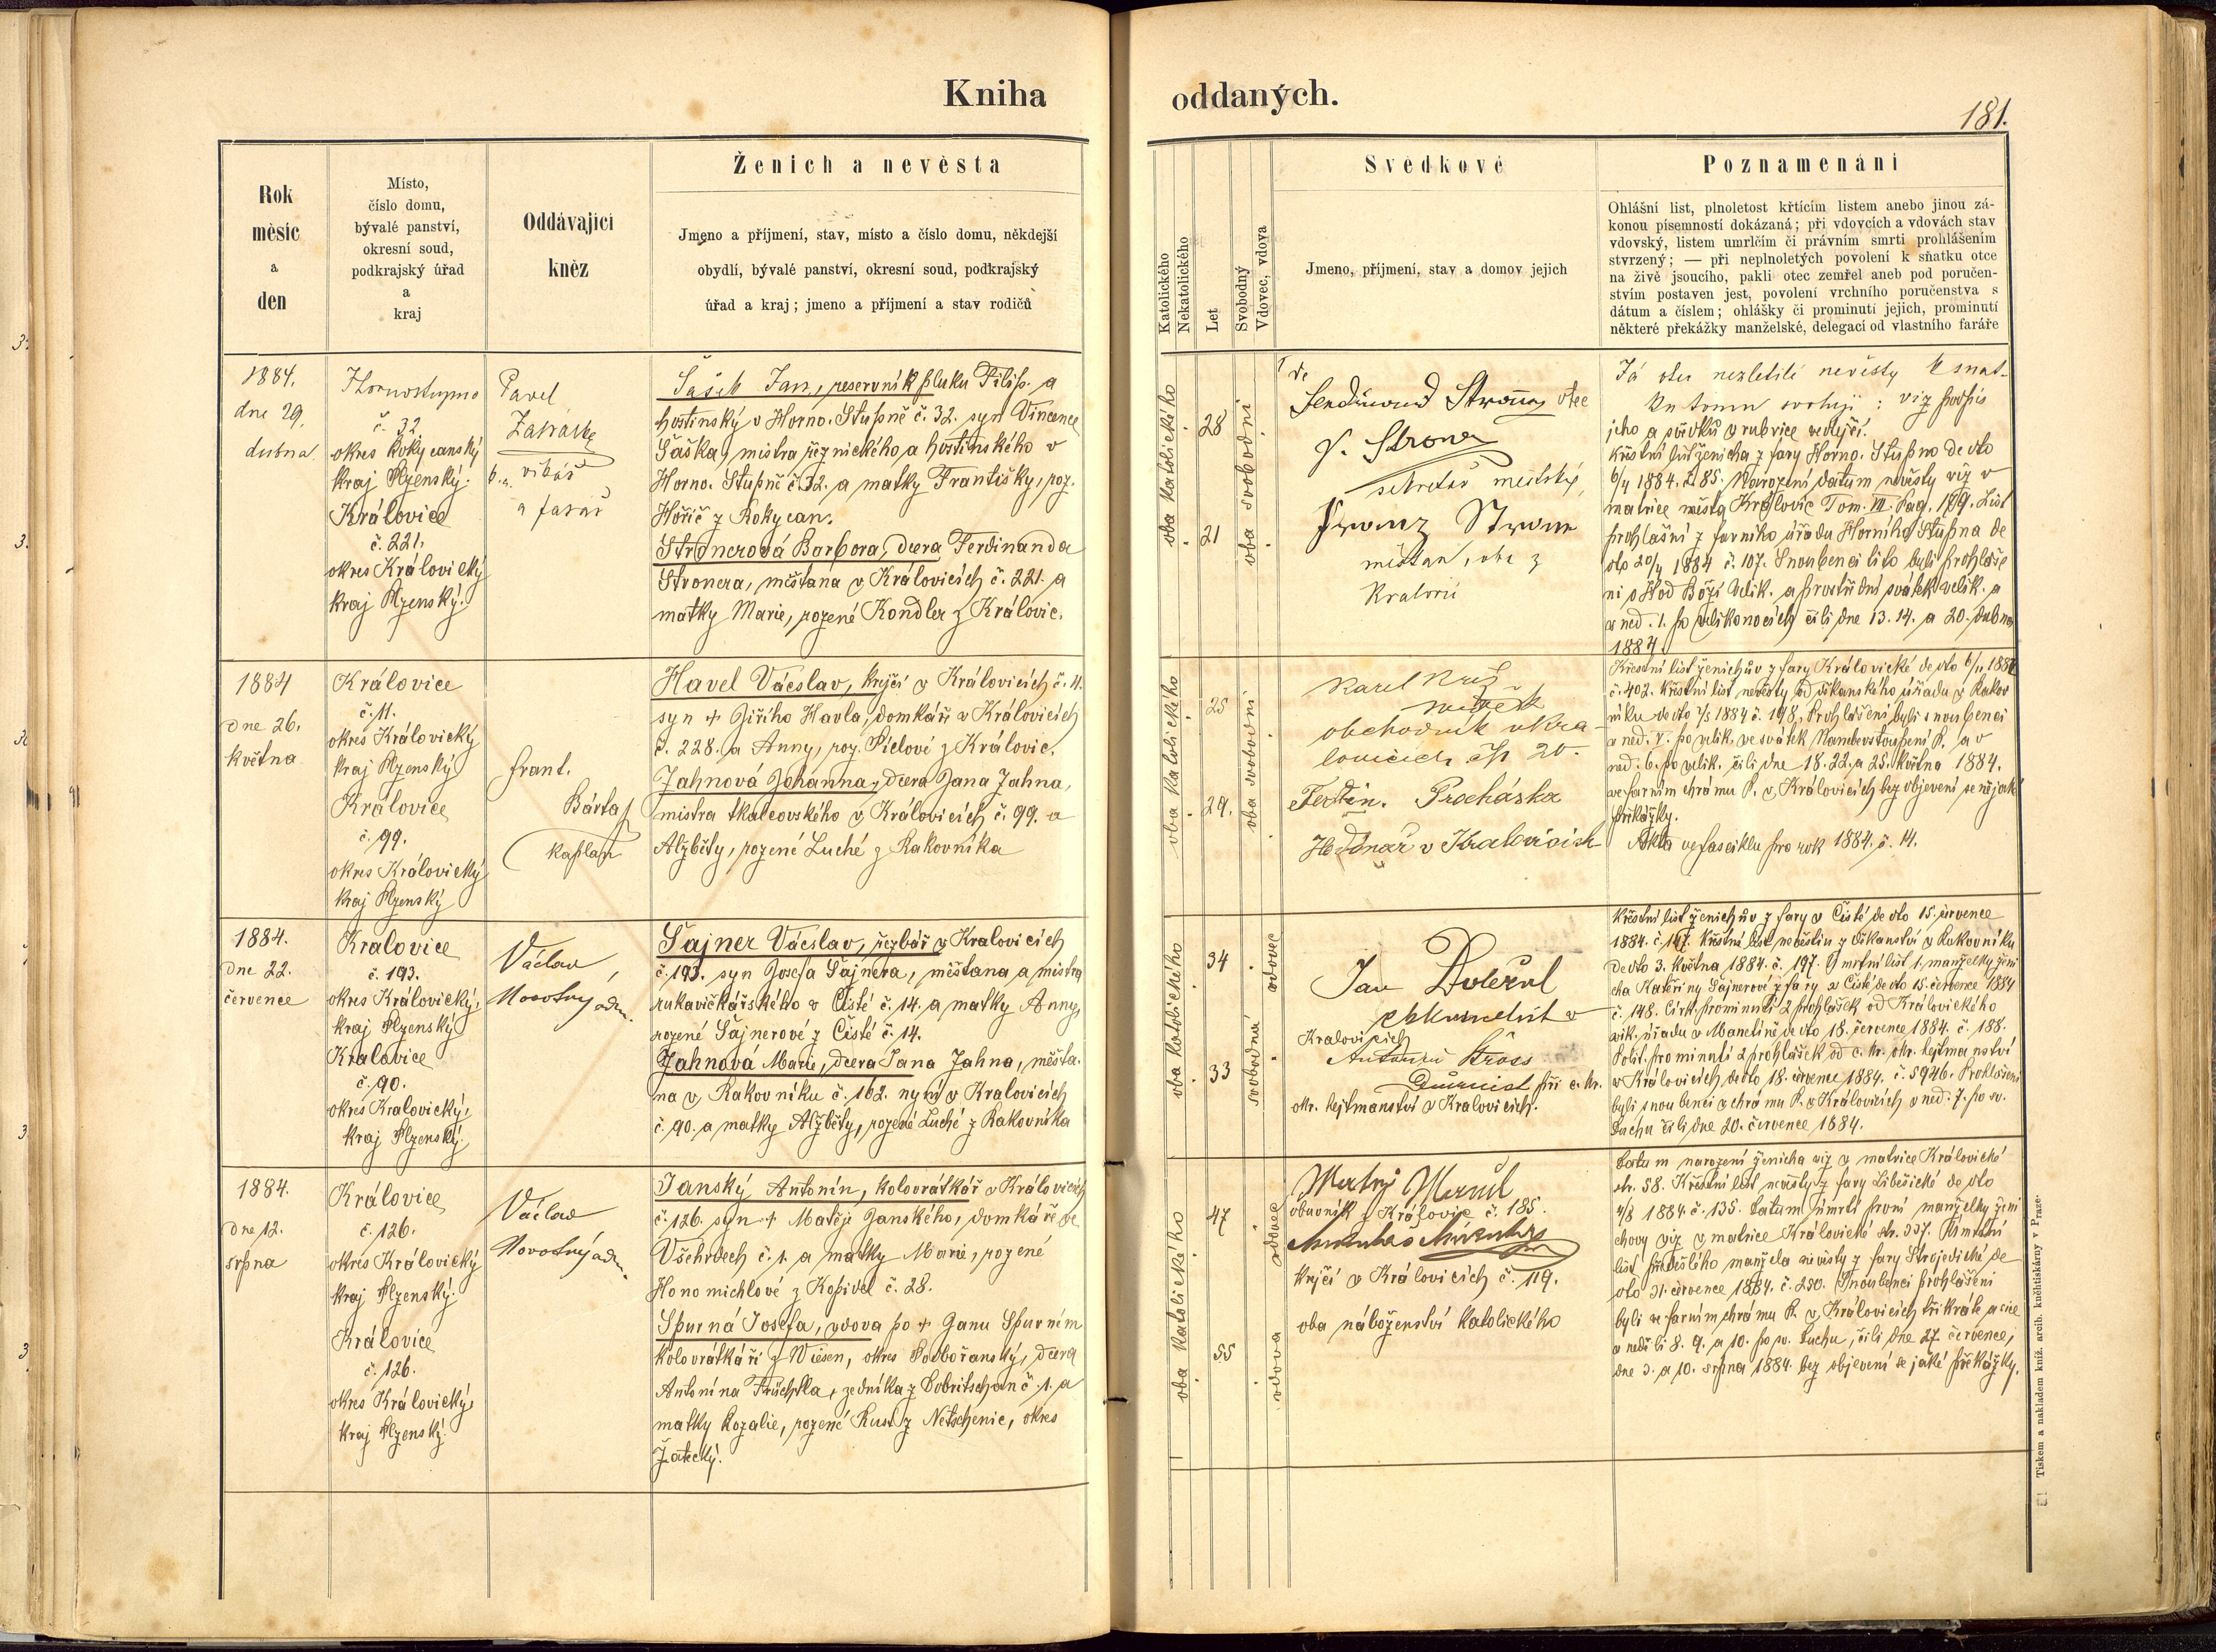 Kniha oddaných.
181.
Rok
měsíc
a
den
Místo,
číslo domu,
bývalé panství,
okresní soud,
podkrajský úřad
a
kraj
Oddávající
kněz
Ženich a nevěsta
Jmeno a příjmení, stav, místo a číslo domu, někdejší
obydlí, bývalé panství, okresní soud, podkrajský
úřad a kraj; jmeno a příjmení a stav rodičů
Katolického
Nekatolického
Let
Svobodný
Vdovec, vdova
Svědkové
Jmeno, příjmení, stav a domov jejich
Poznamenání
Ohlášní list, plnoletost křtícím listem anebo jinou zá-
konou písemností dokázaná; při vdovcích a vdovách stav
vdovský, listem umrlčím či právním smrti prohlášením
stvrzený; — při neplnoletých povolení k sňatku otce
na živě jsoucího, pakli otec zemřel aneb pod poručen-
stvím postaven jest, povolení vrchního poručenstva s
dátum a číslem; ohlášky či prominutí jejich, prominutí
některé překážky manželské, delegací od vlastního faráře
1884.
dne 29.
dubna
č. 32
okres Rokycanský
kraj Plzenský.
Královice
č. 221.
okres Královický
kraj Plzenský.
Pavel
a farář
Šašek Jan, reservník pluku Filip. a
hostinský v Horno. Stupně č. 32. syn Vincence
Šaška, mistra řeznického a hostinského v
Horno. Stupně č. 32. a matky Františky, roz.
Hořič z Rokycan.
Stronerová Barbora, dcera Ferdinanda
Stronera, měšťana v Královicích č. 221. a
matky Marie, rozené Kondler z Královic.
oba katolického
28
21
oba svobodní
otec
sekretář městský
Franz
měšťan, oba z
Kralovic
Já otec nezletilé nevěsty k snat-
ku tomu svoluji: viz podpis
jeho a svědků v rubrice vedlejší.
Křestní list ženicha z fary Horno. Stupno de dto
6/4 1884. č. 85. Narození datum nevěsty viz v
matrice města Královic Tom. VII. Pag. 189. List
prohlášní z farního úřadu Horního Stupna de
dto 20/4 1884 č. 107. Snoubenci tito byli prohláše
ni v Hod Boží Velik. a prostřední svátek velik. a
v ned. 1. po velikonocích čili dne 13. 14. a 20. dubna
1884.
1884
dne 26.
května
Královice
č. 11.
okres Královický
kraj Plzenský
Královice
č. 99.
okres Královický
kraj Plzenský
Frant.
Bárta
kaplan
Havel Václav, krejčí v Královicích č. 11.
syn + Jiřího Havla, domkáře v Královicích
č. 228. a Anny, roz. Pickové z Královic.
Jahnová Johanna, dcera Jana Jahna,
mistra tkalcovského v Královicích č. 99. a
Alžběty, rozené Luché z Rakovníka
oba katolického
25
29.
oba svobodní
Karel Kříž
svědek
obchodník v Kra-
lovicích čp 20.
Ferdin. Procházka
v Kralovicích
Křestní list ženichův z fary Královické de dto
č. 402. Křestní list nevěsty od děkanského úřadu v Rakov
níku de dto 1884 č. 198. Prohlášeni byli snoubenci
v ned. V. po velik. ve svátek Nanebevstoupení P. a v
ned. 6. po velik. čili dne 18. 22. a 25. května 1884.
ve farním chrámu P. v Královicích bez objevení se nějaké
překážky.
Akta ve fasciklu pro rok 1884. č. 14.
1884.
dne 22.
července
Kralovice
č. 193.
okres Královický,
kraj Plzenský
Kralovice
č. 90.
okres Kralovický,
kraj Plzenský.
Václav
Novotný adm.
Šajner Václav, řezbář v Kralovicích
č. 193. syn Josefa Šajnera, měšťana a mistra
rukavičkářského v Čisté č. 14. a matky Anny,
rozené Šajnerové z Čisté č. 14.
Jahnová Marie, dcera Jana Jahna, měšťa-
na v Rakovníku č. 162. nyní v Kralovicích
č. 90. a matky Alžběty, rozené Luché z Rakovníka
oba katolického
34
33
vdovec
svobodná
Jan Doležal
v
Kralovicích
Antonín
při c. kr.
okr. hejtmanství v Kralovicích.
Křestní list ženichův z fary v Čisté de dto 15. července
1884. č. 147. Křestní list nevěstin z děkanství v Rakovníku
de dto 3. května 1884. č. 197. Úmrtní list 1. manželky ženi
cha Kateřiny Šajnerové z fary v Čisté de dto 15. července 1884
č. 148. Círk. prominutí 2 prohlášek od Královického
vik. úřadu v Manetíně de dto 18. července 1884. č. 188.
Polit. prominutí 2 prohlášek od c. kr. okr. hejtmanství
v Královicích de dto 18. července 1884. č. 5946. Prohlášeni
byli snoubenci v chrámu P. v Královicích v ned. 7. po sv.
Duchu čili dne 20. července 1884.
1884.
dne 12.
srpna
Královice
č. 126.
okres Královický
kraj Plzenský.
Královice
č. 126.
okres Královický,
kraj Plzenský.
Václav
Novotný adm.
Janský Antonín, kolovrátkář v Královicích
č. 126. syn + Matěje Janského, domkáře ve
Všehrdech č. 1. a matky Marie, rozené
Honomichlové z Kopidel č. 28.
Spurná Josefa, vdova po + Janu Spurném
kolovrátkáři z Wiesen, okres Podbořanský, dcera
Antonína Früchtla, zedníka z Dobritschan č. 1. a
matky Rozalie, rozené Russ z Netschenic, okres
Žatecký.
oba katolického
47
55
vdovec
vdova
Matěj
obuvník z Královic č. 185.
krejčí v Královicích č. 119.
oba náboženství katolického
Datum narození ženicha viz v matrice Královické
str. 58. Křestní list nevěsty z fary Liběšické de dto
1884. č. 135. Datum úmrtí první manželky ženi
chovy viz v matrice Královické str. 337. Úmrtní
list předešlého manžela nevěsty z fary Strojedické de
dto 31. července 1884. č. 250. Snoubenci prohlášeni
byli ve farním chrámu P. v Královicích třikráte a sice
v neděli 8. 9. a 10. po sv. Duchu, čili dne 27. července,
dne 3. a 10. srpna 1884. bez objevení se jaké překážky.
Tiskem a nakladem kníž. arcib. kněhtiskárny v Praze.